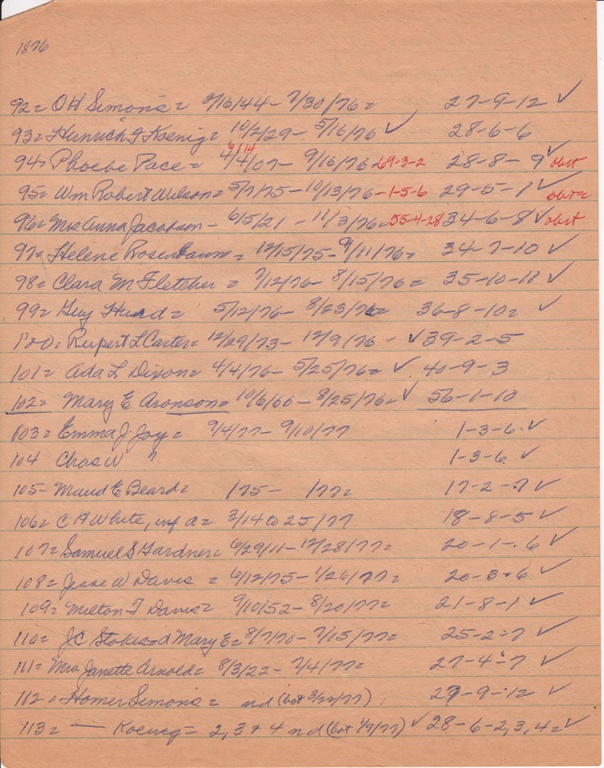 1876
92= O H Simons= 2/16/44 - 7/30/76= 27-9-12 ✓
93= Heinrich F Koenig= 10/2/29 - 5/16/76 ✓ 28-6-6
6/14
94= Phoebe Pace= 4/4/07 - 9/16/76 69-3-2 28-8-9 ✓ obit
95= Wm Robert Wilson= 5/7/75 - 10/13/76 -1-5-6 29-5-1 ✓ obit=
96= Mrs Anna Jacobson - 6/5/21 - 11/3/76= 55-4-28 34-6-8 ✓ obit
97= Helene Rosenbaum= 12/15/75 - 9/11/76= 34-7-10 ✓
98= Clara M Fletcher= 7/12/76 - 8/15/76= 35-10-11 ✓
99= Guy Hurd= 5/12/76 - 8/23/76 36-8-10= ✓
100= Rupert L Carter= 12/29/73 - 12/9/76 - ✓ 39-2-5
101= Ada L Dixon= 4/4/76 - 5/25/76= ✓ 40-9-3
102= Mary E Aronson= 10/6/66 - 8/25/76= ✓ 56-1-10
103= Emma J Joy= 9/4/77 - 9/10/77 1-3-6 ✓
104 Chas W " 1-3-6 ✓
105- Maud E Beard= 175 - 177= 17-2-7 ✓
106= C H White, inf a= 3/14 to 25/77 18-8-5 ✓
107= Samuel S Gardner= 6/29/11 - 12/28/77= 20-1-6 ✓
108= Jesse W Davis= 6/12/75 - 1/26/77= 20-3+6 ✓
109= Milton T Davis= 9/10/52 - 8/20/77= 21-8-1 ✓
110= J C Stokes=d Mary E= 8/7/70 - 7/15/77= 25-2=7 ✓
111= Mrs Janette Arnold= 8/3/22 - 7/4/77= 27-4-7 ✓
112= Homer Simons= nd (bot 3/22/77) 27-9-12 ✓
113= — Koenig= 2,3+4 nd (bot 1/9/77) ✓ 28-6-2,3,4= ✓